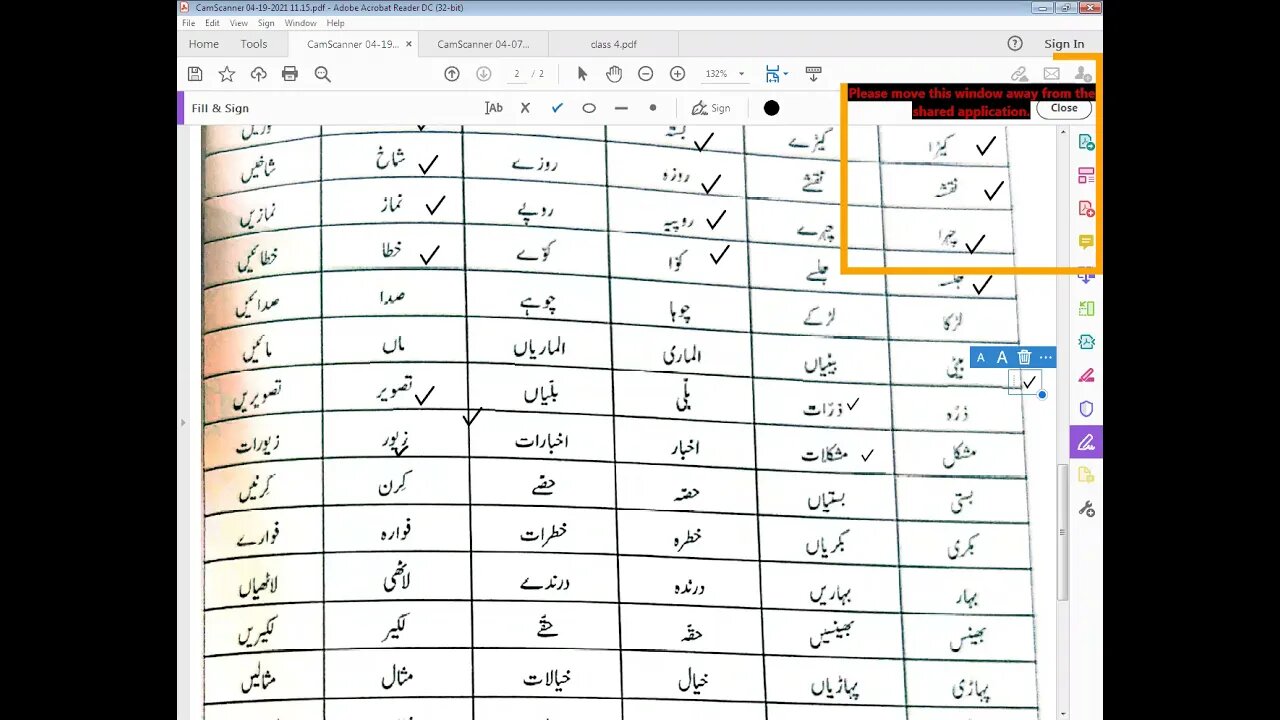 CamScanner 04-19-2021 11.15.pdf - Adobe Acrobat Reader DC (32-bit)
File Edit View Sign Window Help
Home Tools CamScanner 04-19... × CamScanner 04-07... class 4.pdf ? Sign In
2 / 2 132%
Please move this window away from the
shared application.
Fill & Sign Ab Sign Close
کیڑا کیڑے بستہ
نقشہ نقشے روزہ روزے شاخ شاخیں
چہرا چہرے روپیہ روپے نماز نمازیں
جلسہ جلسے کوّا کوّے خطا خطائیں
لڑکا لڑکے چوہا چوہے صدا صدائیں
بیٹی بیٹیاں الماری الماریاں ماں مائیں
A A ...
ذرّہ ذرّات بلّی بلّیاں تصویر تصویریں
مشکل مشکلات اخبار اخبارات زیور زیورات
بستی بستیاں حصّہ حصّے کِرن کِرنیں
بکری بکریاں خطرہ خطرات فوارہ فوارے
بہار بہاریں درندہ درندے لاٹھی لاٹھیاں
بھینس بھینسیں حقّہ حقّے لکیر لکیریں
پہاڑی پہاڑیاں خیال خیالات مثال مثالیں